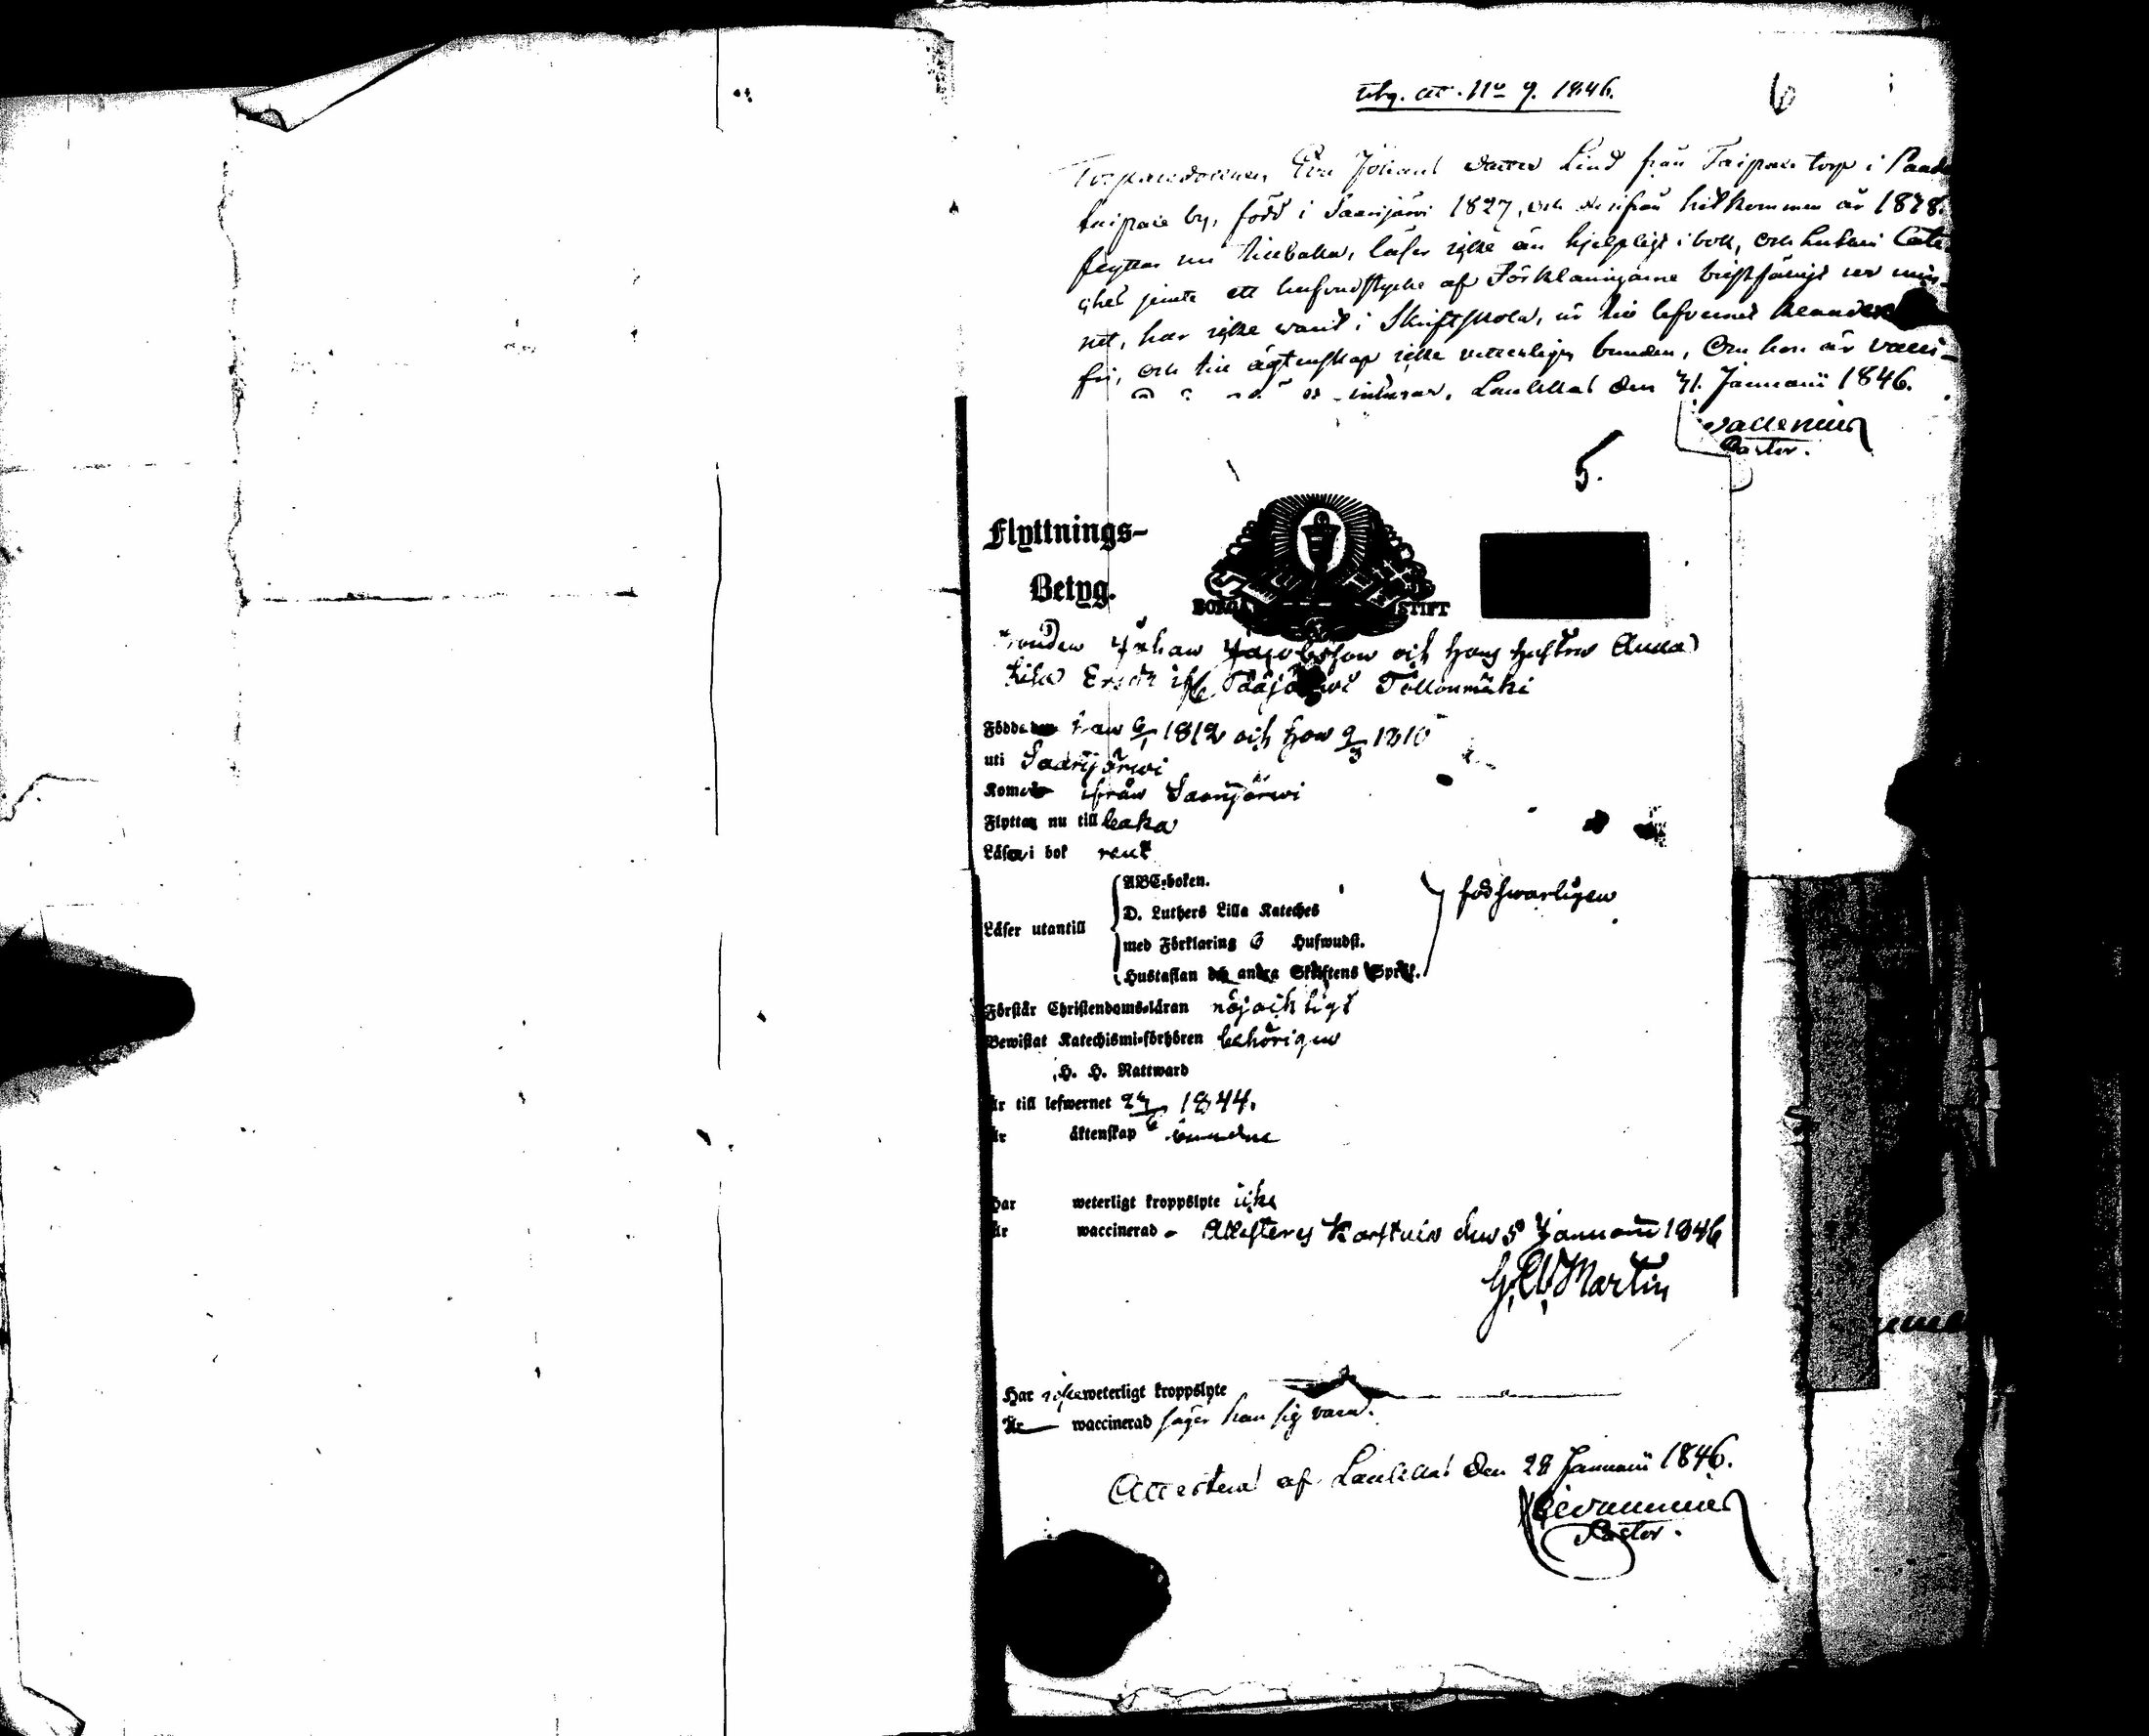 utg. att. No 9. 1846.
6
Eva Johans dotter Lind från Taipale torp i
taipale by, född i Saarijärvi 1827, och derifrån hitkommen år 1828.
flyttar nu tillbaka, läser icke än hjelpligt i bok, och Lutheri Cate-
ches jemte ett hufvudstycke af Förklaringarne bristfälligt ur min-
net, har icke varit i Skriftskola, är till lefvernet
fri, och till ägtenskap icke vetterligen bunden, Om hon är vacci-
Laukkas den 31. Januarii 1846.
Pastor.
5.
Flyttnings-
Betyg.
BORGÅ STIFT
Johan Jacobsson och hans hustru Anna
Lisa Ersdr ifr. Pääjärwi Töllönmäki
Födde han 6/1 1812 och hon 9/3 1810
uti Saarijärwi
Komne ifrån Saarijärwi
Flyttar nu tillbaka
Läsa i bok rent
ABC-boken.
D. Luthers Lilla Kateches
Läser utantill
med Förklaring 6 Hufwudst.
Hustaflan och andra Skriftens Språk.
försvarligen
Förstår Christendoms-läran nöjachtligt
Bewistat Katechismi-förhören behörigen
H. H. Nattward
Är till lefwernet 24/6 1844.
Är äktenskap bundne
Har weterligt kroppslyte icke
Är waccinerad - Attesteras Karstula den 5 Januarii 1846
G. W. Martin
Har icke weterligt kroppslyte
Är waccinerad säger han sig vara.
Attesterad af Laukkas den 28 Januarii 1846.
Pastor.